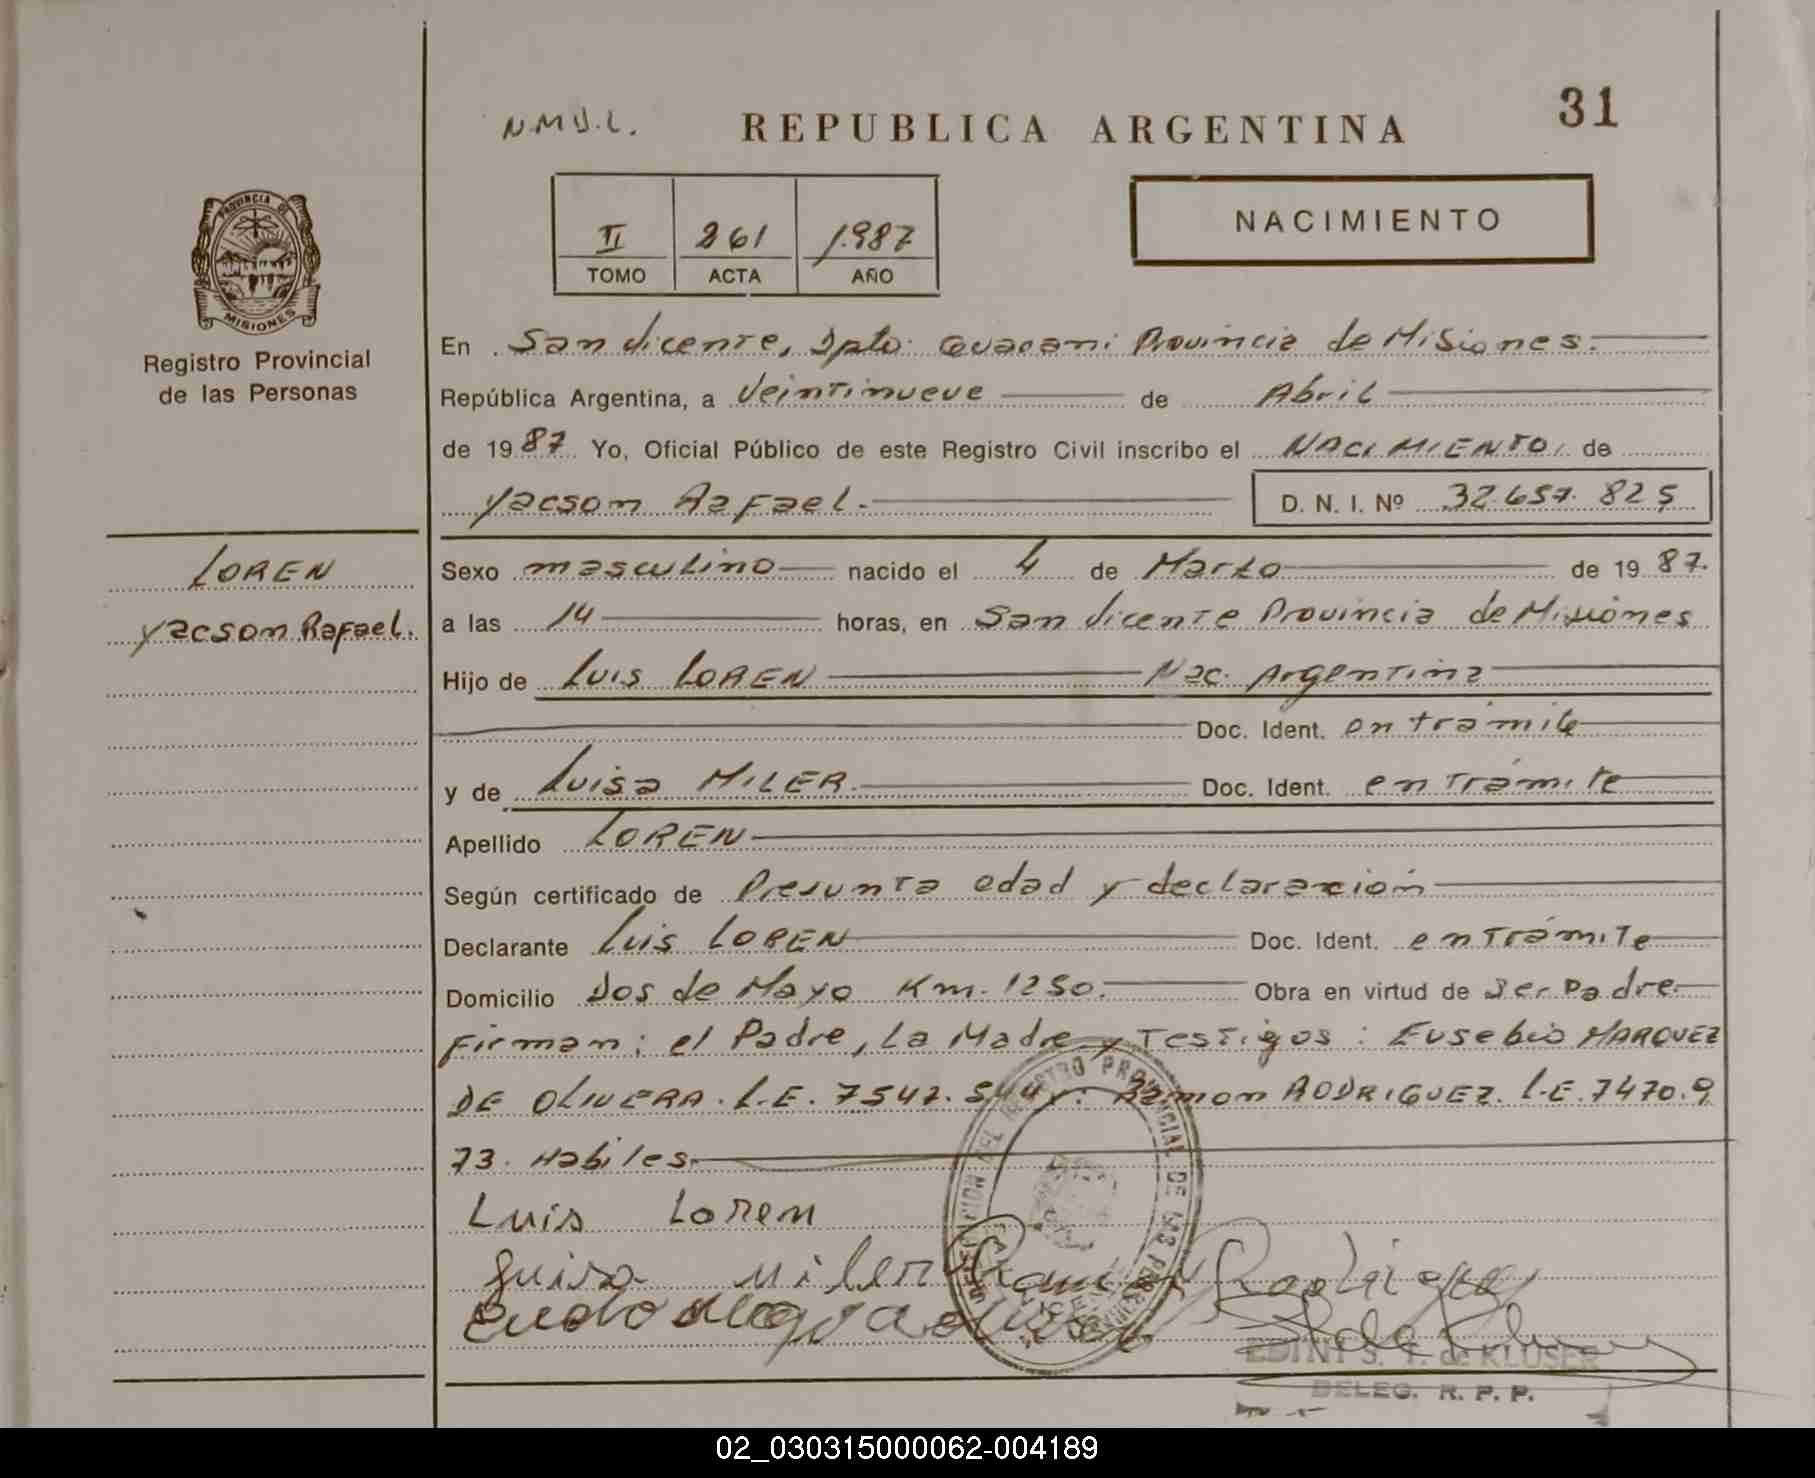 31
N.M.U.L.
REPUBLICA ARGENTINA
NACIMIENTO
II 261 1.987
TOMO ACTA AÑO
PROVINCIA DE
MISIONES
Registro Provincial
de las Personas
En San Vicente, Dpto: Guaraní Provincia de Misiones.
República Argentina, a Veintinueve de Abril
de 1987 Yo, Oficial Público de este Registro Civil inscribo el NACIMIENTO de
Yacson Rafael. D. N. I. Nº 32.657.825
LOREN
Yacson Rafael.
Sexo masculino nacido el 4 de Marzo de 1987.
a las 14 horas, en San Vicente Provincia de Misiones
Hijo de Luis LOREN Nac. Argentina
Doc. Ident. en trámite
y de Luisa MILER Doc. Ident. en trámite
Apellido LOREN
Según certificado de Presunta edad y declaración
Declarante Luis LOREN Doc. Ident. en trámite
Domicilio Dos de Mayo Km. 1250. Obra en virtud de Ser Padre
Firman: el Padre, La Madre y Testigos: Eusebio MARQUEZ
DE OLIVERA. L.E. 7547.544 y: Ramon RODRIGUEZ. L.E. 7470.9
73. Habiles
Luis Loren
Luisa Miler Ramon Rodriguez
EDINI S. T. de KLUSER
DELEG. R. P. P.
02_030315000062-004189